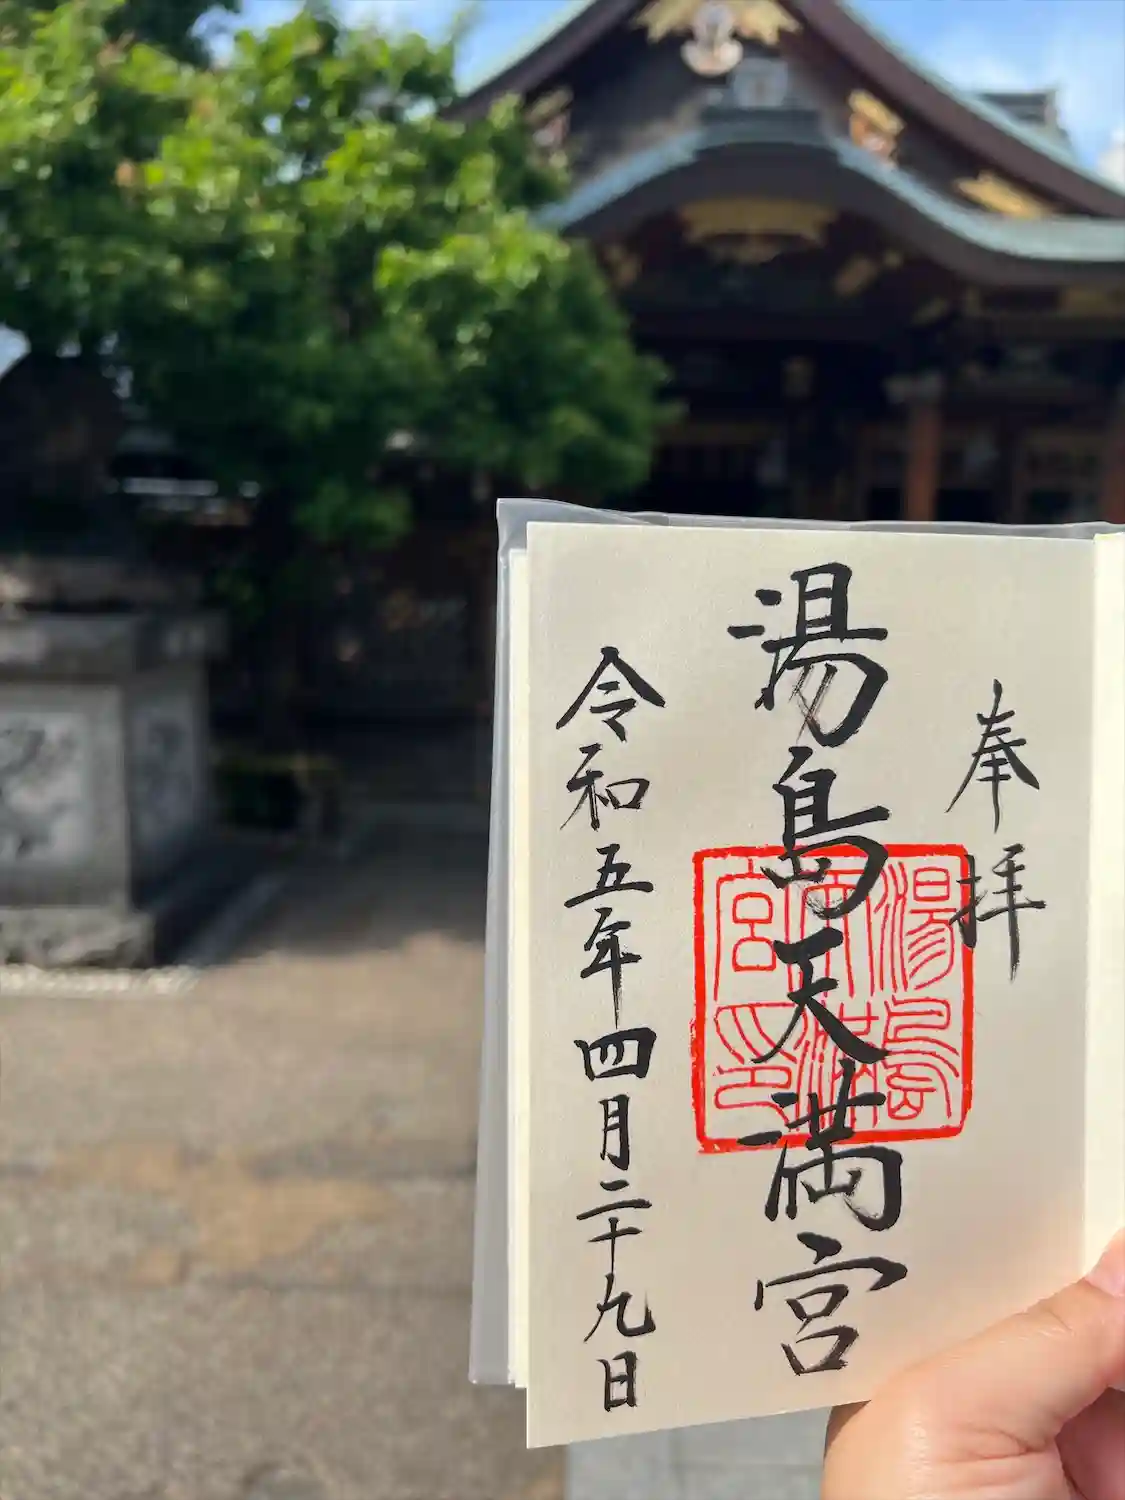 奉拝
湯島天満宮
湯島天満宮印
令和五年四月二十九日